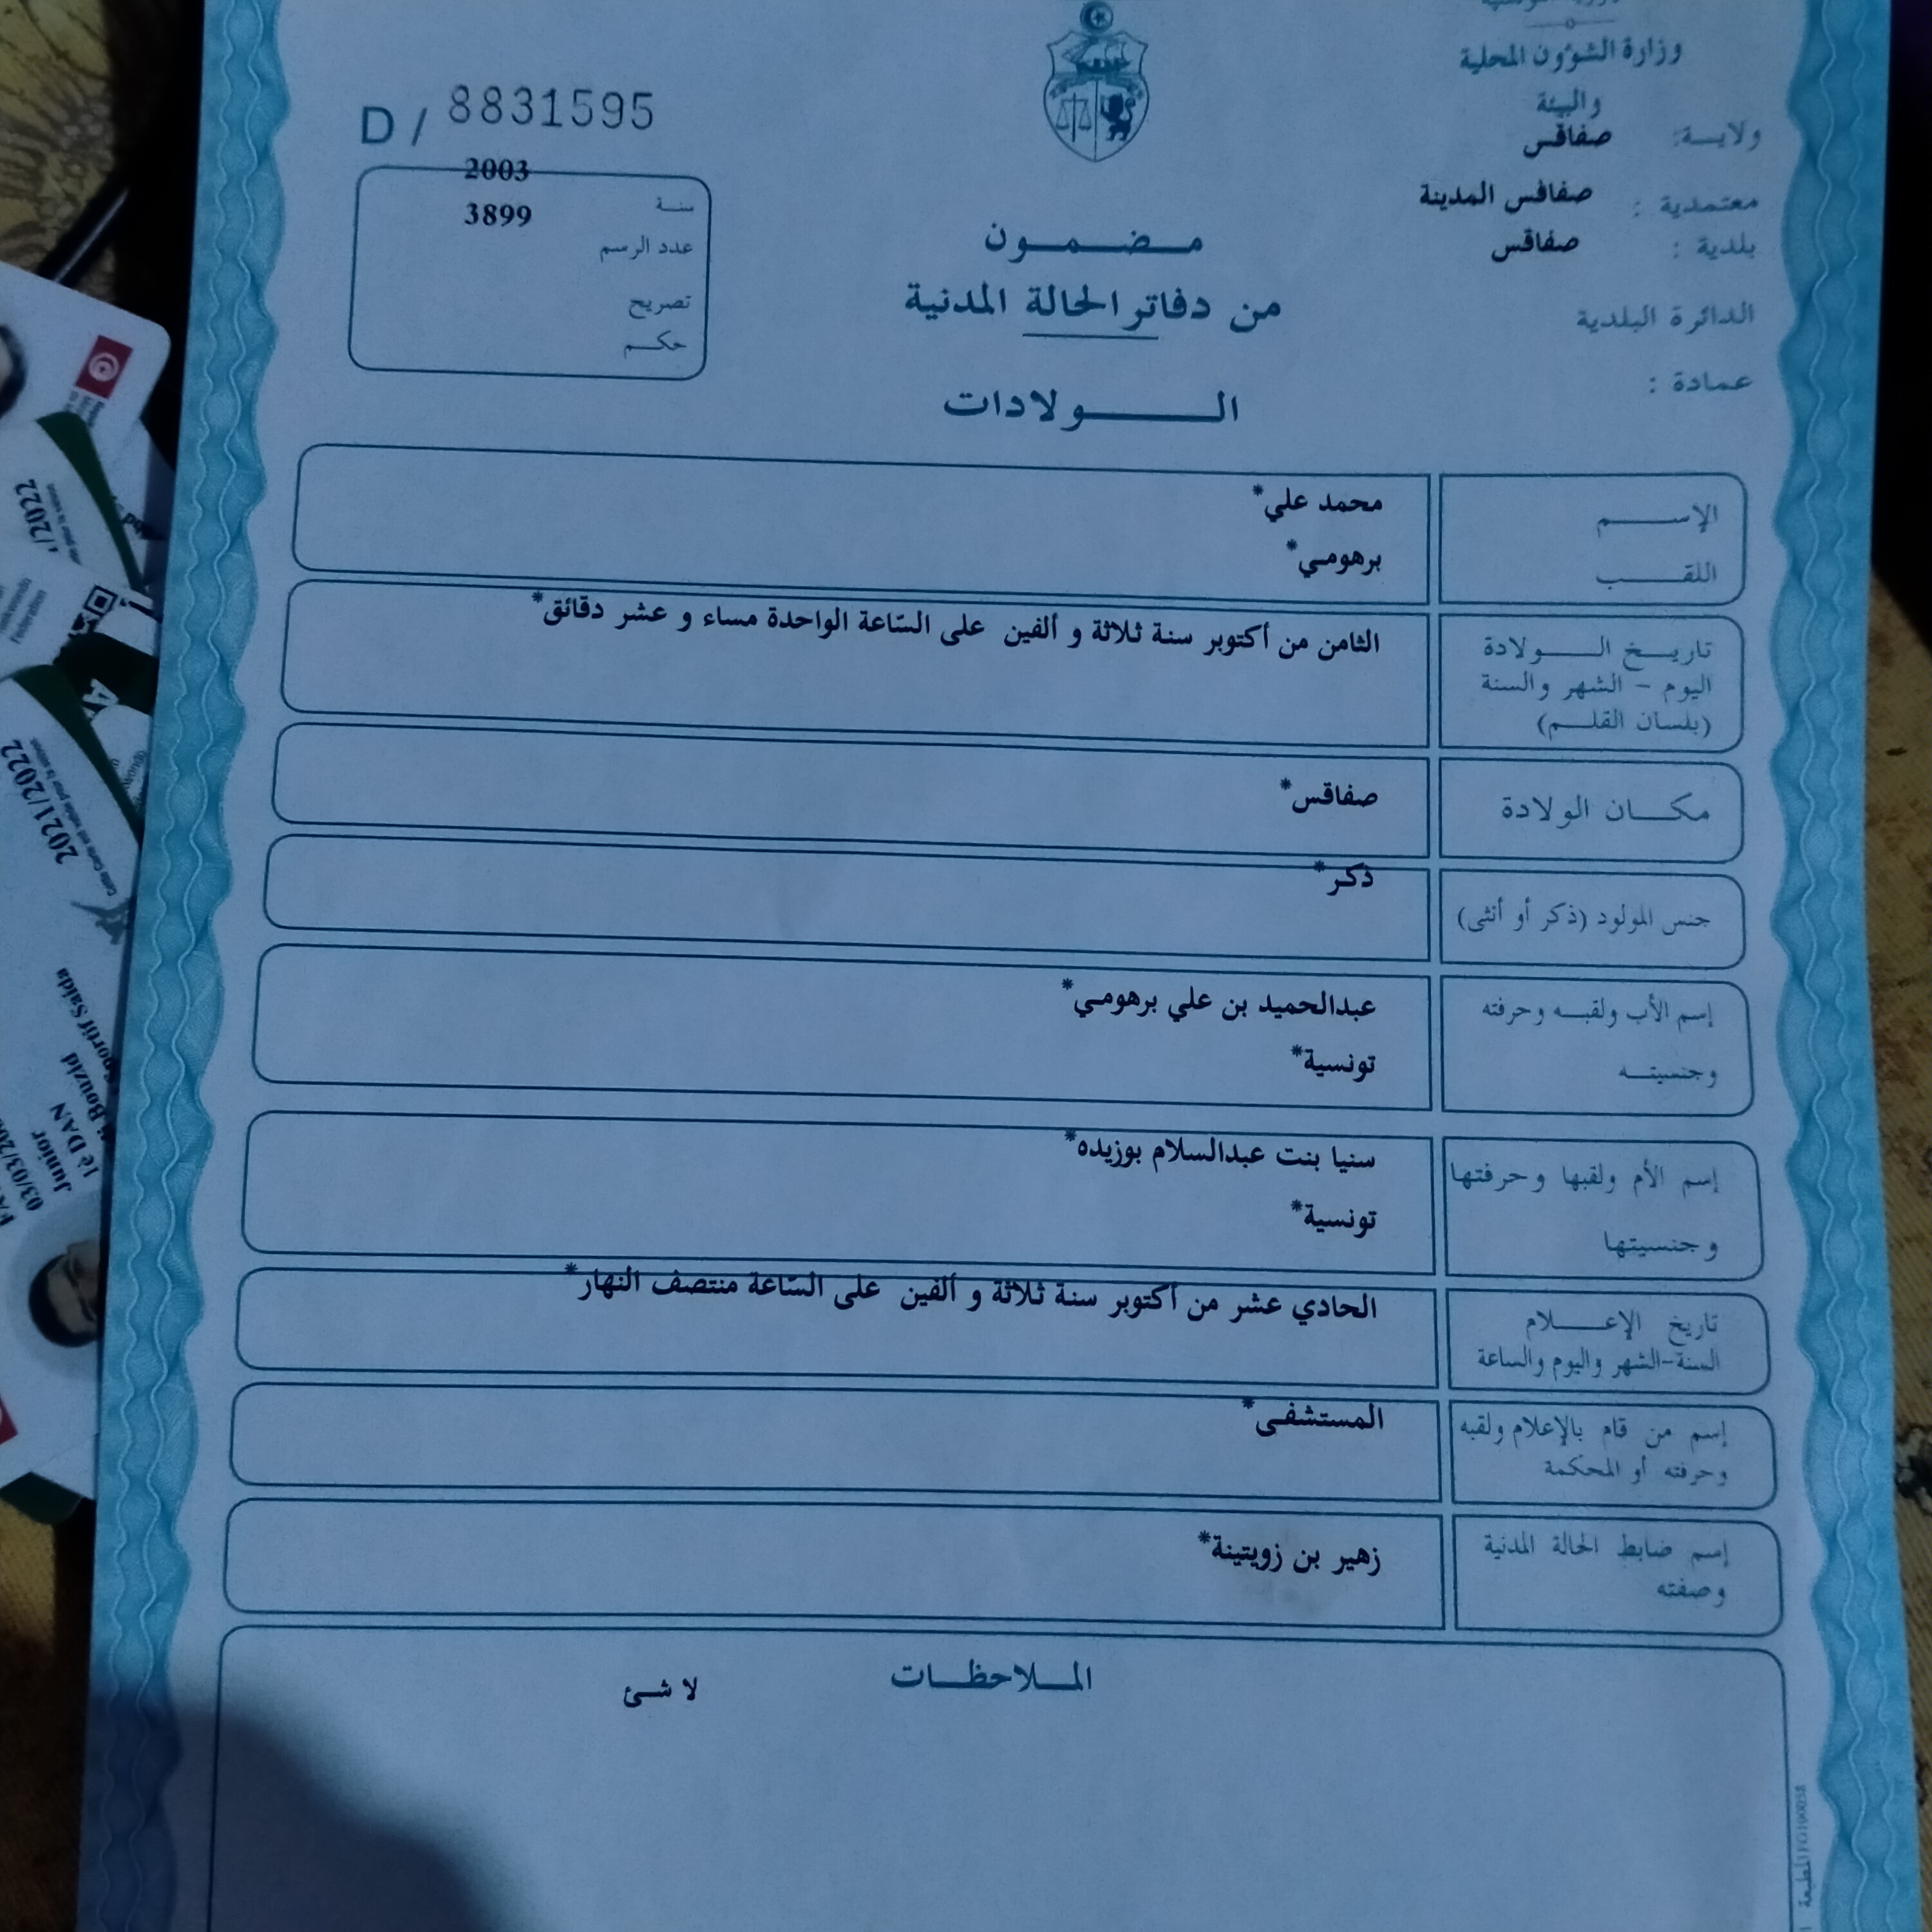 وزارة الشؤون المحلية
والبيئة
ولايـــة: صفاقس
معتمدية : صفاقس المدينة
بلدية : صفاقس
الدائرة البلدية
عمادة :
D / 8831595
2003
سنــة
3899
عدد الرسم
تصريح
حكــم
مـضـمـون
من دفاتر الحالة المدنية
الـــولادات
الإســـم محمد علي*
اللقـــب برهومي*
تاريــخ الــولادة الثامن من أكتوبر سنة ثلاثة و ألفين على السّاعة الواحدة مساء و عشر دقائق*
اليوم - الشهر والسنة
(بلسان القلــم)
مكــان الولادة صفاقس*
جنس المولود (ذكر أو أنثى) ذكر*
إسم الأب ولقبــه وحرفته عبدالحميد بن علي برهومي*
وجنسيتــه تونسية*
إسم الأم ولقبها وحرفتها سنيا بنت عبدالسلام بوزيده*
وجنسيتها تونسية*
تاريخ الإعــلام الحادي عشر من أكتوبر سنة ثلاثة و ألفين على السّاعة منتصف النهار*
السنة-الشهر واليوم والساعة
إسم من قام بالإعلام ولقبه المستشفى*
وحرفته أو المحكمة
إسم ضابط الحالة المدنية زهير بن زويتينة*
وصفته
المــلاحظــات
لا شئ
1/2022
2021/2022
Sportif Saida
Bouzid
1è DAN
Junior